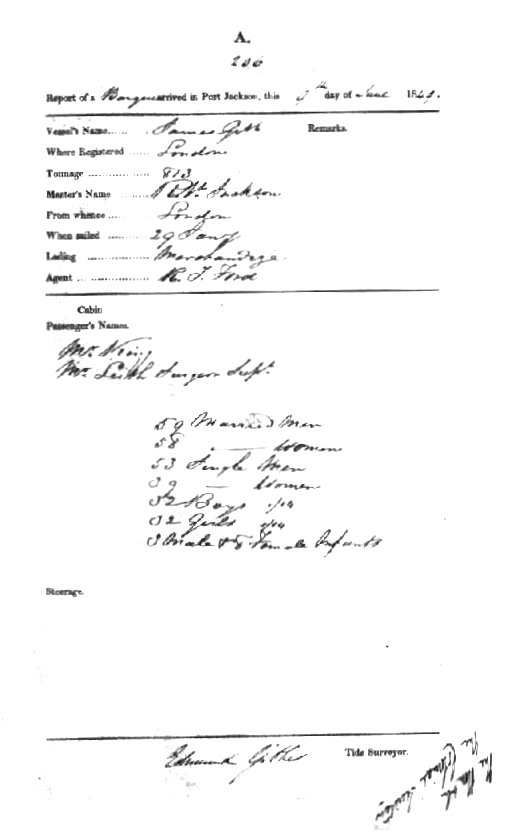 A.
206
Report of a Barque arrived in Port Jackson, this 7th day of June 1849.
Vessel's Name...... James Gibb Remarks.
Where Registered ...... London
Tonnage .................. 813
Master's Name ........ Jackson
From whence ............ London
When sailed ........... 29 Jany
Lading .................. Merchandize
Agent .................... R. T. Ford
Cabin
Passenger's Names.
Mr. King
Mr. Leith Surgeon Supt.
59 Married Men
58 " — Women
53 Single Men
39 — Women
32 Boys 1/14
32 Girls 1/14
3 Male & 8 Female Infants
Steerage.
Edmund Tide Surveyor.